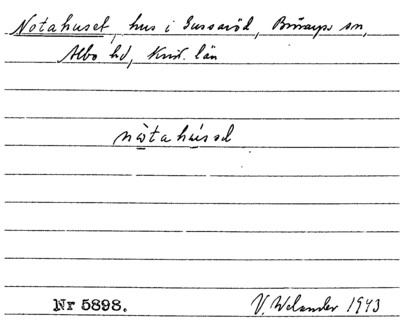 Notahuset, hus i Sussaröd, Brösarps sn,
Albo hd, Krist. län
nòtahúsəd
Nr 5898. V. Welander 1943